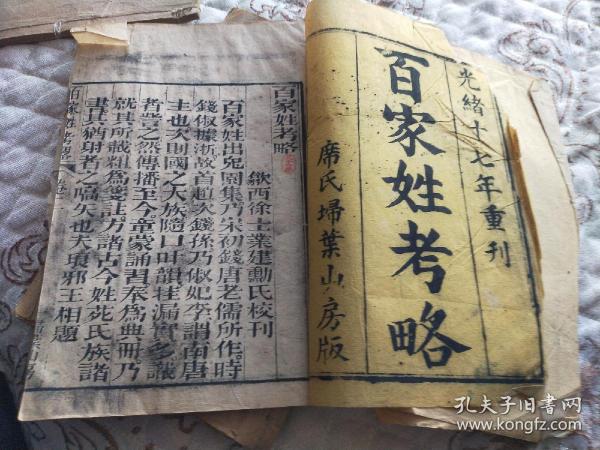 光緒十七年重刊
百家姓考略
席氏埽葉山房版
百家姓考略
歙西徐士業建勳氏校刊
百家姓出兎園集乃宋初錢唐老儒所作時
錢俶據浙故首趙次錢孫乃俶妃李謂南唐
主也次則國之大族隨口叶韻挂漏實多識
者訾之然傳播至今童蒙誦習奉爲典冊乃
就其所載粗爲箋註方諸古今姓苑氏族諸
書其猶射者之嚆矢也夫琅邪王相題
百家姓考略
孔夫子旧书网
www.kongfz.com